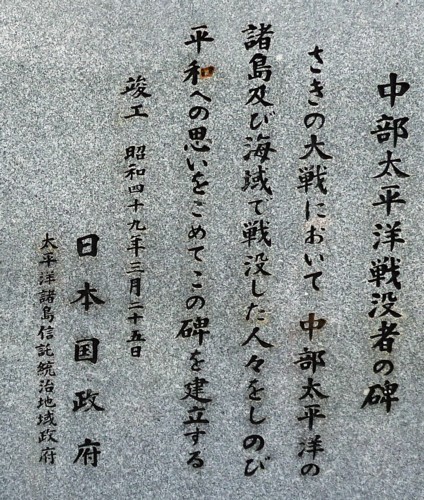 中部太平洋戦没者の碑
さきの大戦において 中部太平洋の
諸島及び海域で戦没した人々をしのび
平和への思いをこめてこの碑を建立する
竣工 昭和四十九年三月二十五日
日本国政府
太平洋諸島信託統治地域政府